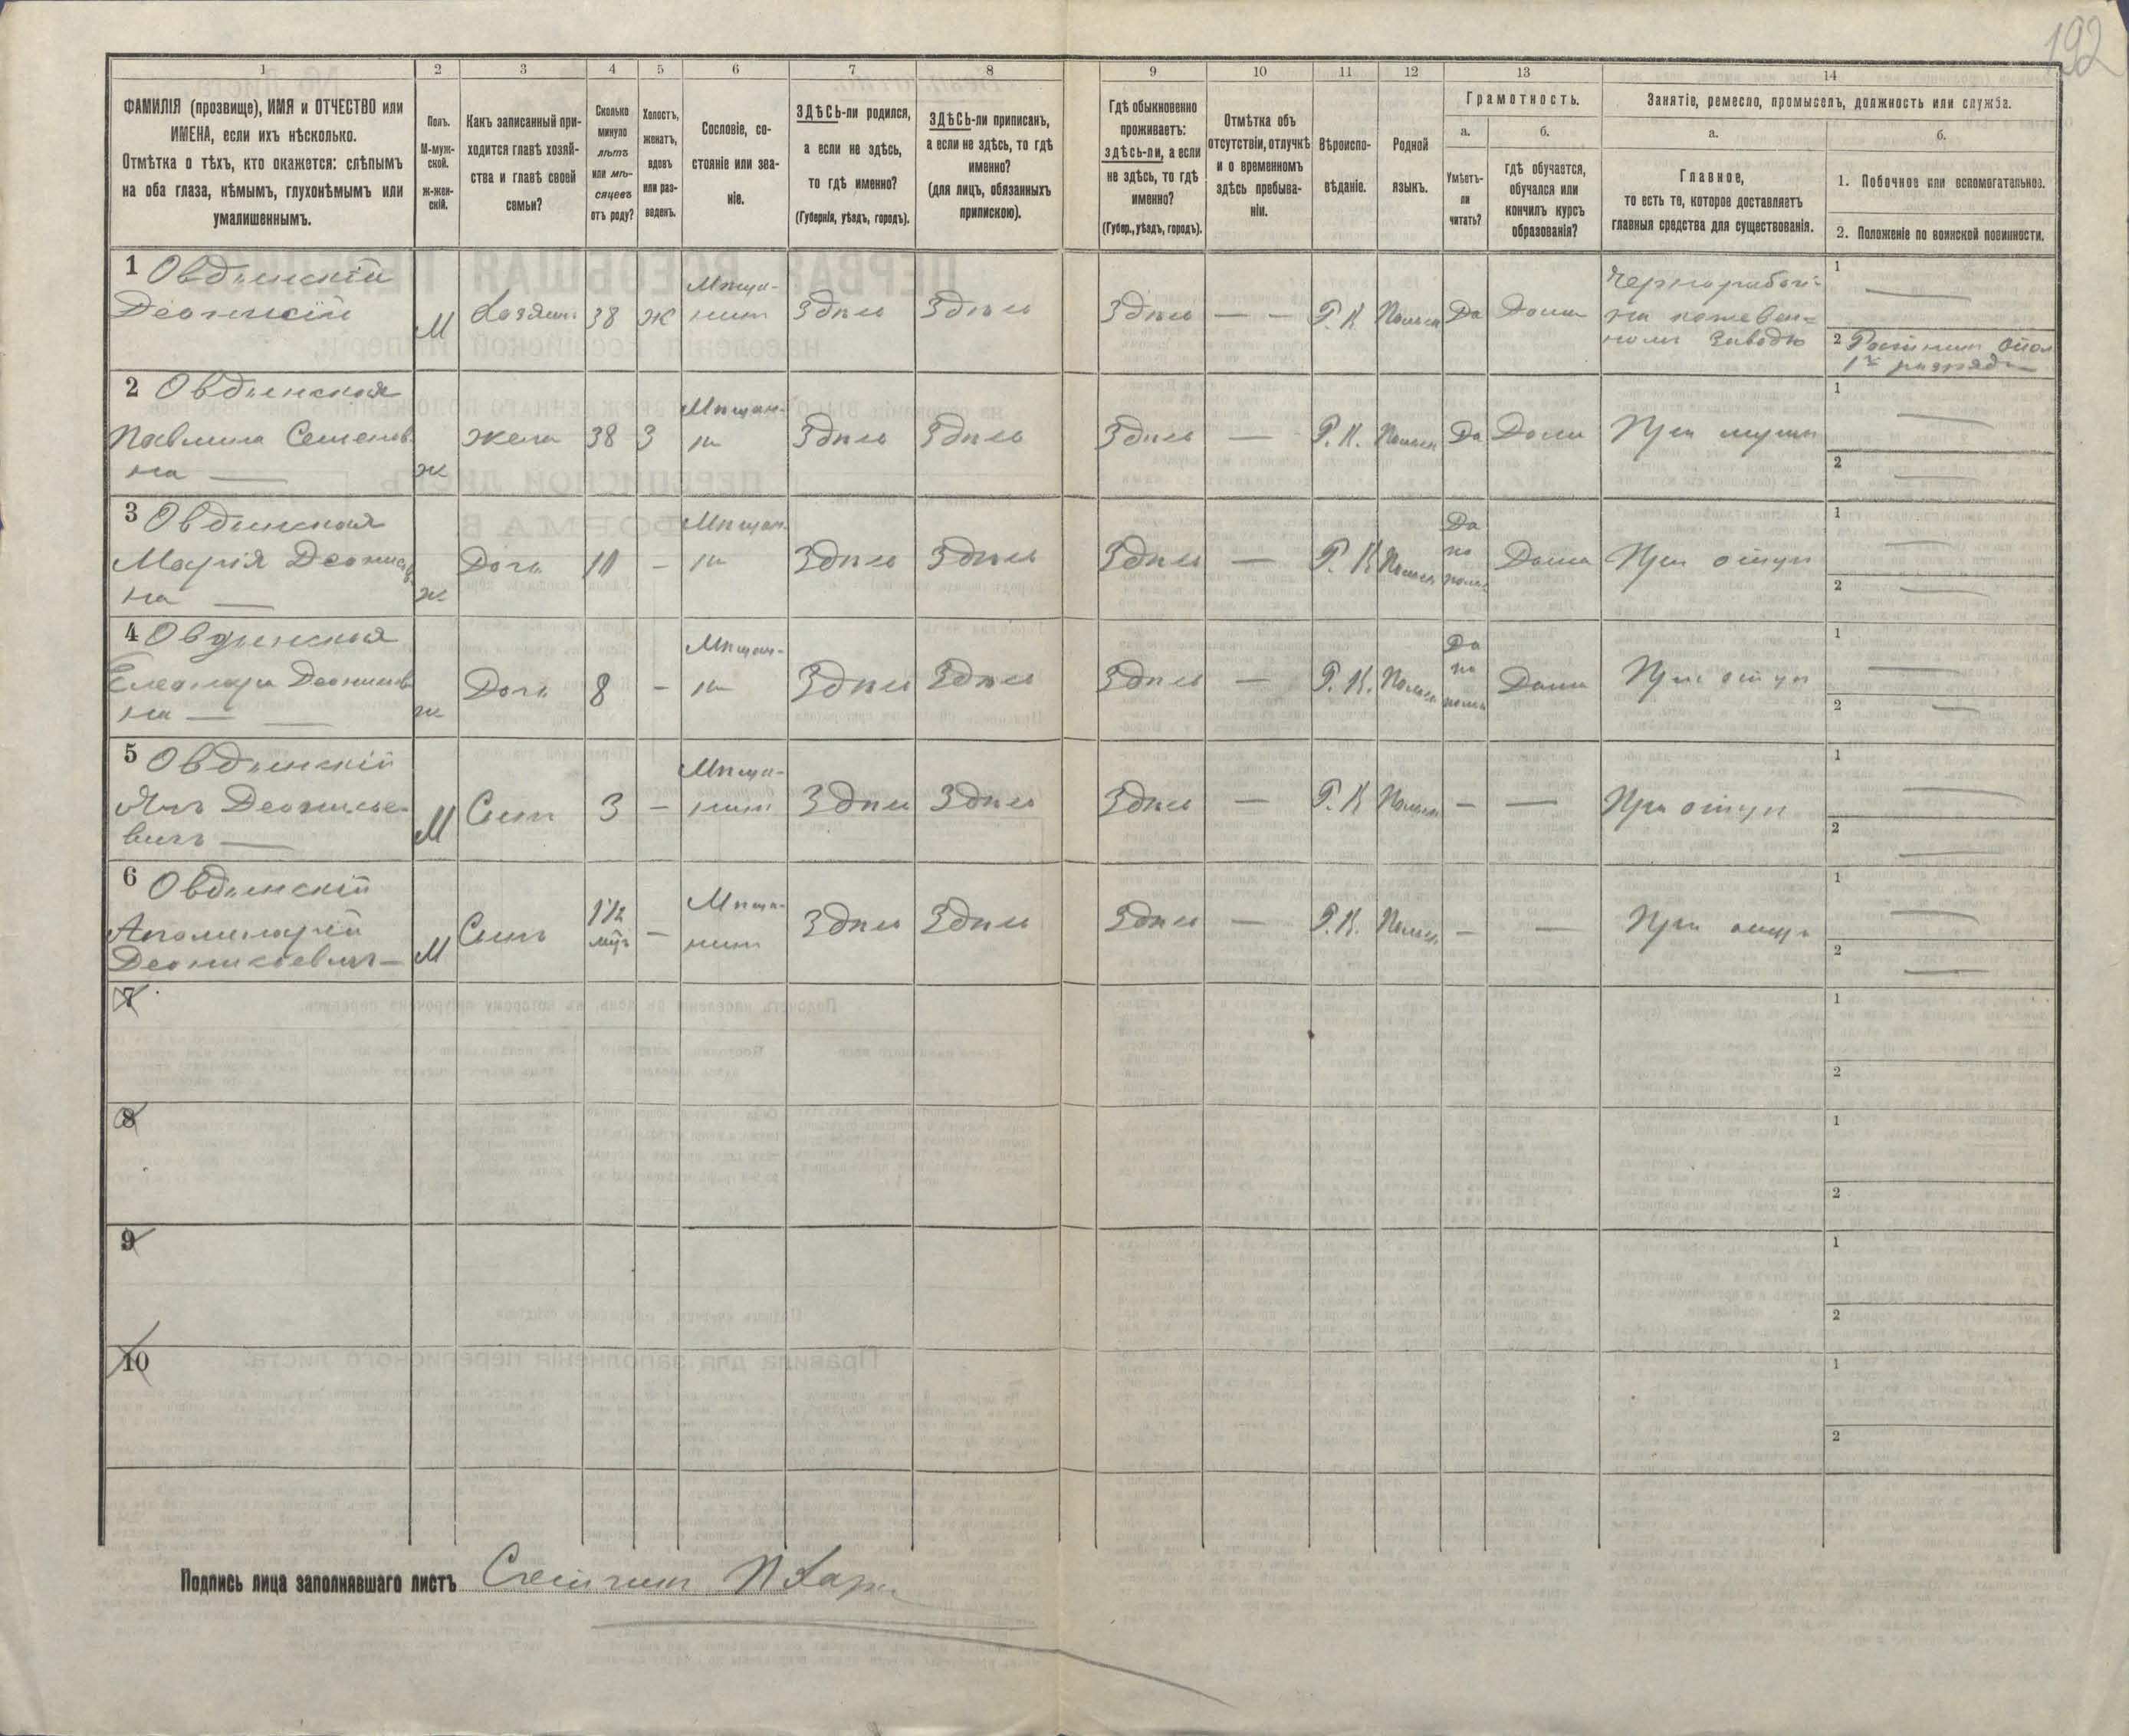 192
1 2 3 4 5 6 7 8 9 10 11 12 13 14
ФАМИЛІЯ (прозвище), ИМЯ и ОТЧЕСТВО или
ИМЕНА, если ихъ нѣсколько.
Отмѣтка о тѣхъ, кто окажется: слѣпымъ
на оба глаза, нѣмымъ, глухонѣмымъ или
умалишеннымъ.
Полъ.
М-муж-
ской.
Ж-жен-
скій.
Какъ записанный при-
ходится главѣ хозяй-
ства и главѣ своей
семьи?
Сколько
минуло
лѣтъ
или мѣ-
сяцевъ
отъ роду?
Холостъ,
женатъ,
вдовъ
или раз-
веденъ.
Сословіе, со-
стояніе или зва-
ніе.
ЗДѢСЬ-ли родился,
а если не здѣсь,
то гдѣ именно?
(Губернія, уѣздъ, городъ).
ЗДѢСЬ-ли приписанъ,
а если не здѣсь, то гдѣ
именно?
(для лицъ, обязанныхъ
припискою).
Гдѣ обыкновенно
проживаетъ:
здѣсь-ли, а если
не здѣсь, то гдѣ
именно?
(Губер., уѣздъ, городъ).
Отмѣтка объ
отсутствіи, отлучкѣ
и о временномъ
здѣсь пребыва-
ніи.
Вѣроиспо-
вѣданіе.
Родной
языкъ.
Грамотность.
а.
Умѣетъ-
ли
читать?
б.
гдѣ обучается,
обучался или
кончилъ курсъ
образованія?
Занятіе, ремесло, промыселъ, должность или служба.
а.
Главное,
то есть то, которое доставляетъ
главныя средства для существованія.
б.
1. Побочное или вспомогательное.
2. Положеніе по воинской повинности.
1 Овдинскій
М Хозяинъ 38 Ж Мѣща-
нинъ Здѣсь Здѣсь Здѣсь — — Р. К Польск Да Дома
Чернорабочі-
на кожевен-
номъ Заводѣ
1 —
2 Ратникъ Опол
1го разряда
2 Овдинская
Павлина Семенов
на — ж жена 38 З Мѣщан-
ка Здѣсь Здѣсь Здѣсь — Р. К. Польск Да Дома При мужѣ
1 —
2 —
3 Овдинская
Марія
на — ж Дочь 10 — Мѣщан-
ка Здѣсь Здѣсь Здѣсь — Р. К Польск Да
по
польс Дома При отцѣ
1 —
2 —
4 Овдинская
Елеонора
на — ж Дочь 8 — Мѣщан-
ка Здѣсь Здѣсь Здѣсь — Р. К. Польск Да
по
польс Дома При отцѣ
1 —
2 —
5 Овдинскій
Янъ
вичъ — М Сынъ 3 — Мѣща-
нинъ Здѣсь Здѣсь Здѣсь — Р. К Польск — — При отцѣ
1 —
2 —
6 Овдинскій
Аполинарій
М Сынъ — Мѣща-
нинъ Здѣсь Здѣсь Здѣсь — Р. К. Польск. — — При отцѣ
1 —
2 —
7
1
2
8
1
2
9
1
2
10
1
2
Подпись лица заполнявшаго листъ Счетчикъ